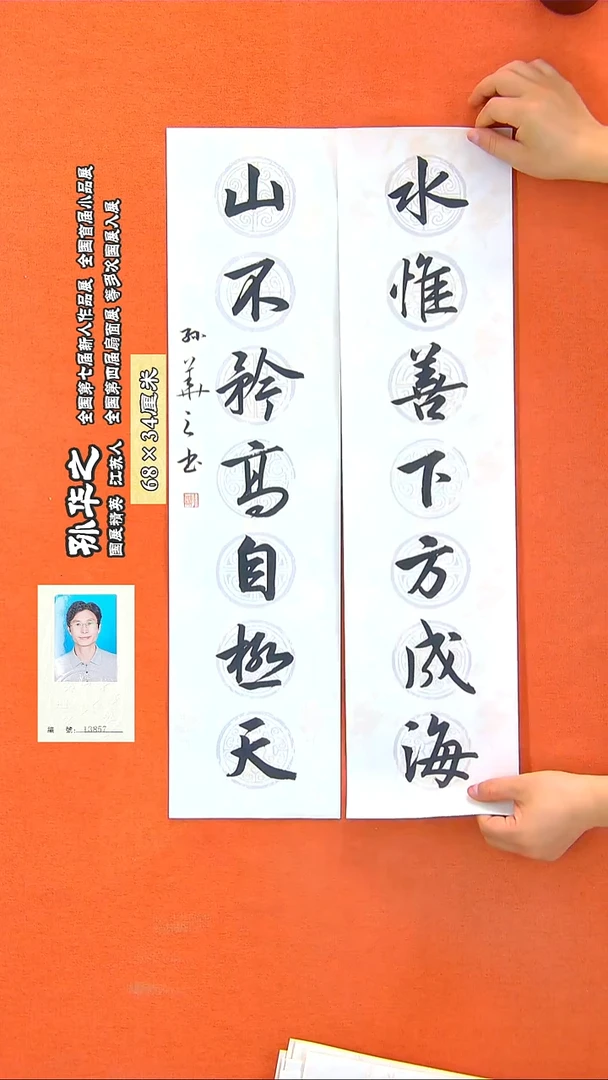 水惟善下方成海
山不矜高自极天
孙华之书
孙华之
国展精英 江苏人
全国第七届新人作品展 全国首届小品展
全国第四届扇面展 等多次国展入展
68×34厘米
编 號: 13857